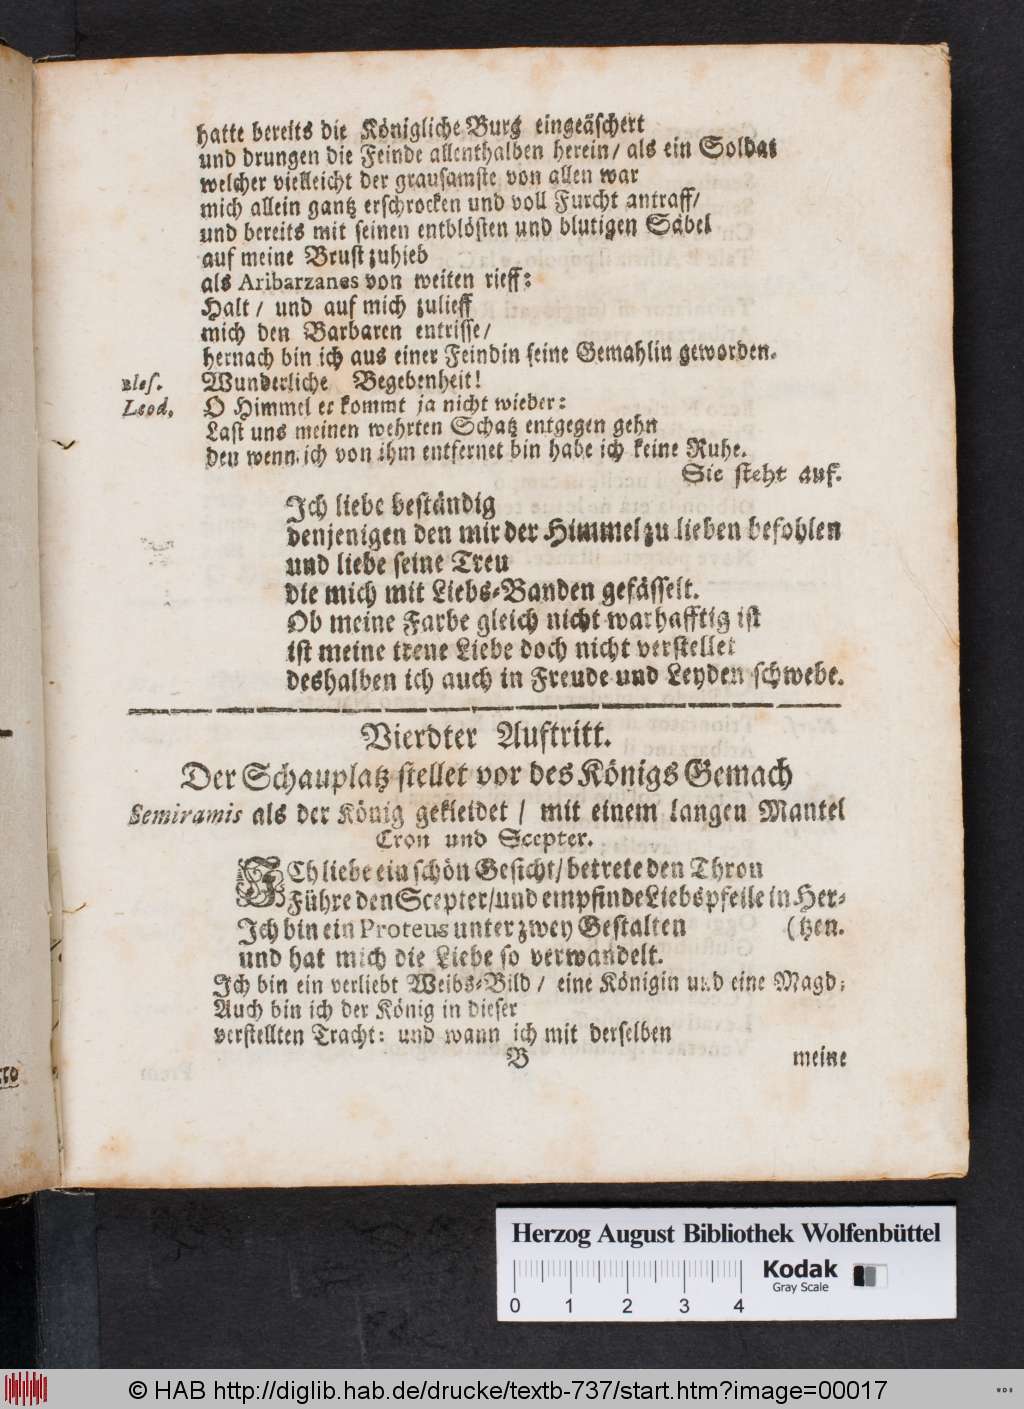 hatte bereits die Königliche Burg eingeäschert
und drungen die Feinde allenthalben herein / als ein Soldat
welcher vielleicht der grausamste von allen war
mich allein gantz erschrocken und voll Furcht antraff /
und bereits mit seinen entblösten und blutigen Säbel
auf meine Brust zuhieb
als Aribarzanes von weiten rieff:
Halt / und auf mich zulieff
mich den Barbaren entrisse /
hernach bin ich aus einer Feindin seine Gemahlin geworden.
Eles. Wunderliche Begebenheit!
Leod. O Himmel er kommt ja nicht wieder:
Last uns meinen wehrten Schatz entgegen gehn
den wenn ich von ihm entfernet bin habe ich keine Ruhe.
Sie steht auf.
Ich liebe beständig
denjenigen den mir der Himmel zu lieben befohlen
und liebe seine Treu
die mich mit Liebs-Banden gefässelt.
Ob meine Farbe gleich nicht warhafftig ist
ist meine treue Liebe doch nicht verstellet
deshalben ich auch in Freude und Leyden schwebe.
Vierdter Auftritt.
Der Schauplatz stellet vor des Königs Gemach
Semiramis als der König gekleidet / mit einem langen Mantel
Cron und Scepter.
ICh liebe ein schön Gesicht / betrete den Thron
Führe den Scepter / und empfinde Liebspfeile in Her-
Ich bin ein Proteus unter zwey Gestalten (tzen.
und hat mich die Liebe so verwandelt.
Ich bin ein verliebt Weibs-Bild / eine Königin und eine Magd;
Auch bin ich der König in dieser
verstellten Tracht: und wann ich mit derselben
B meine
Herzog August Bibliothek Wolfenbüttel
Kodak
Gray Scale
0 1 2 3 4
© HAB http://diglib.hab.de/drucke/textb-737/start.htm?image=00017